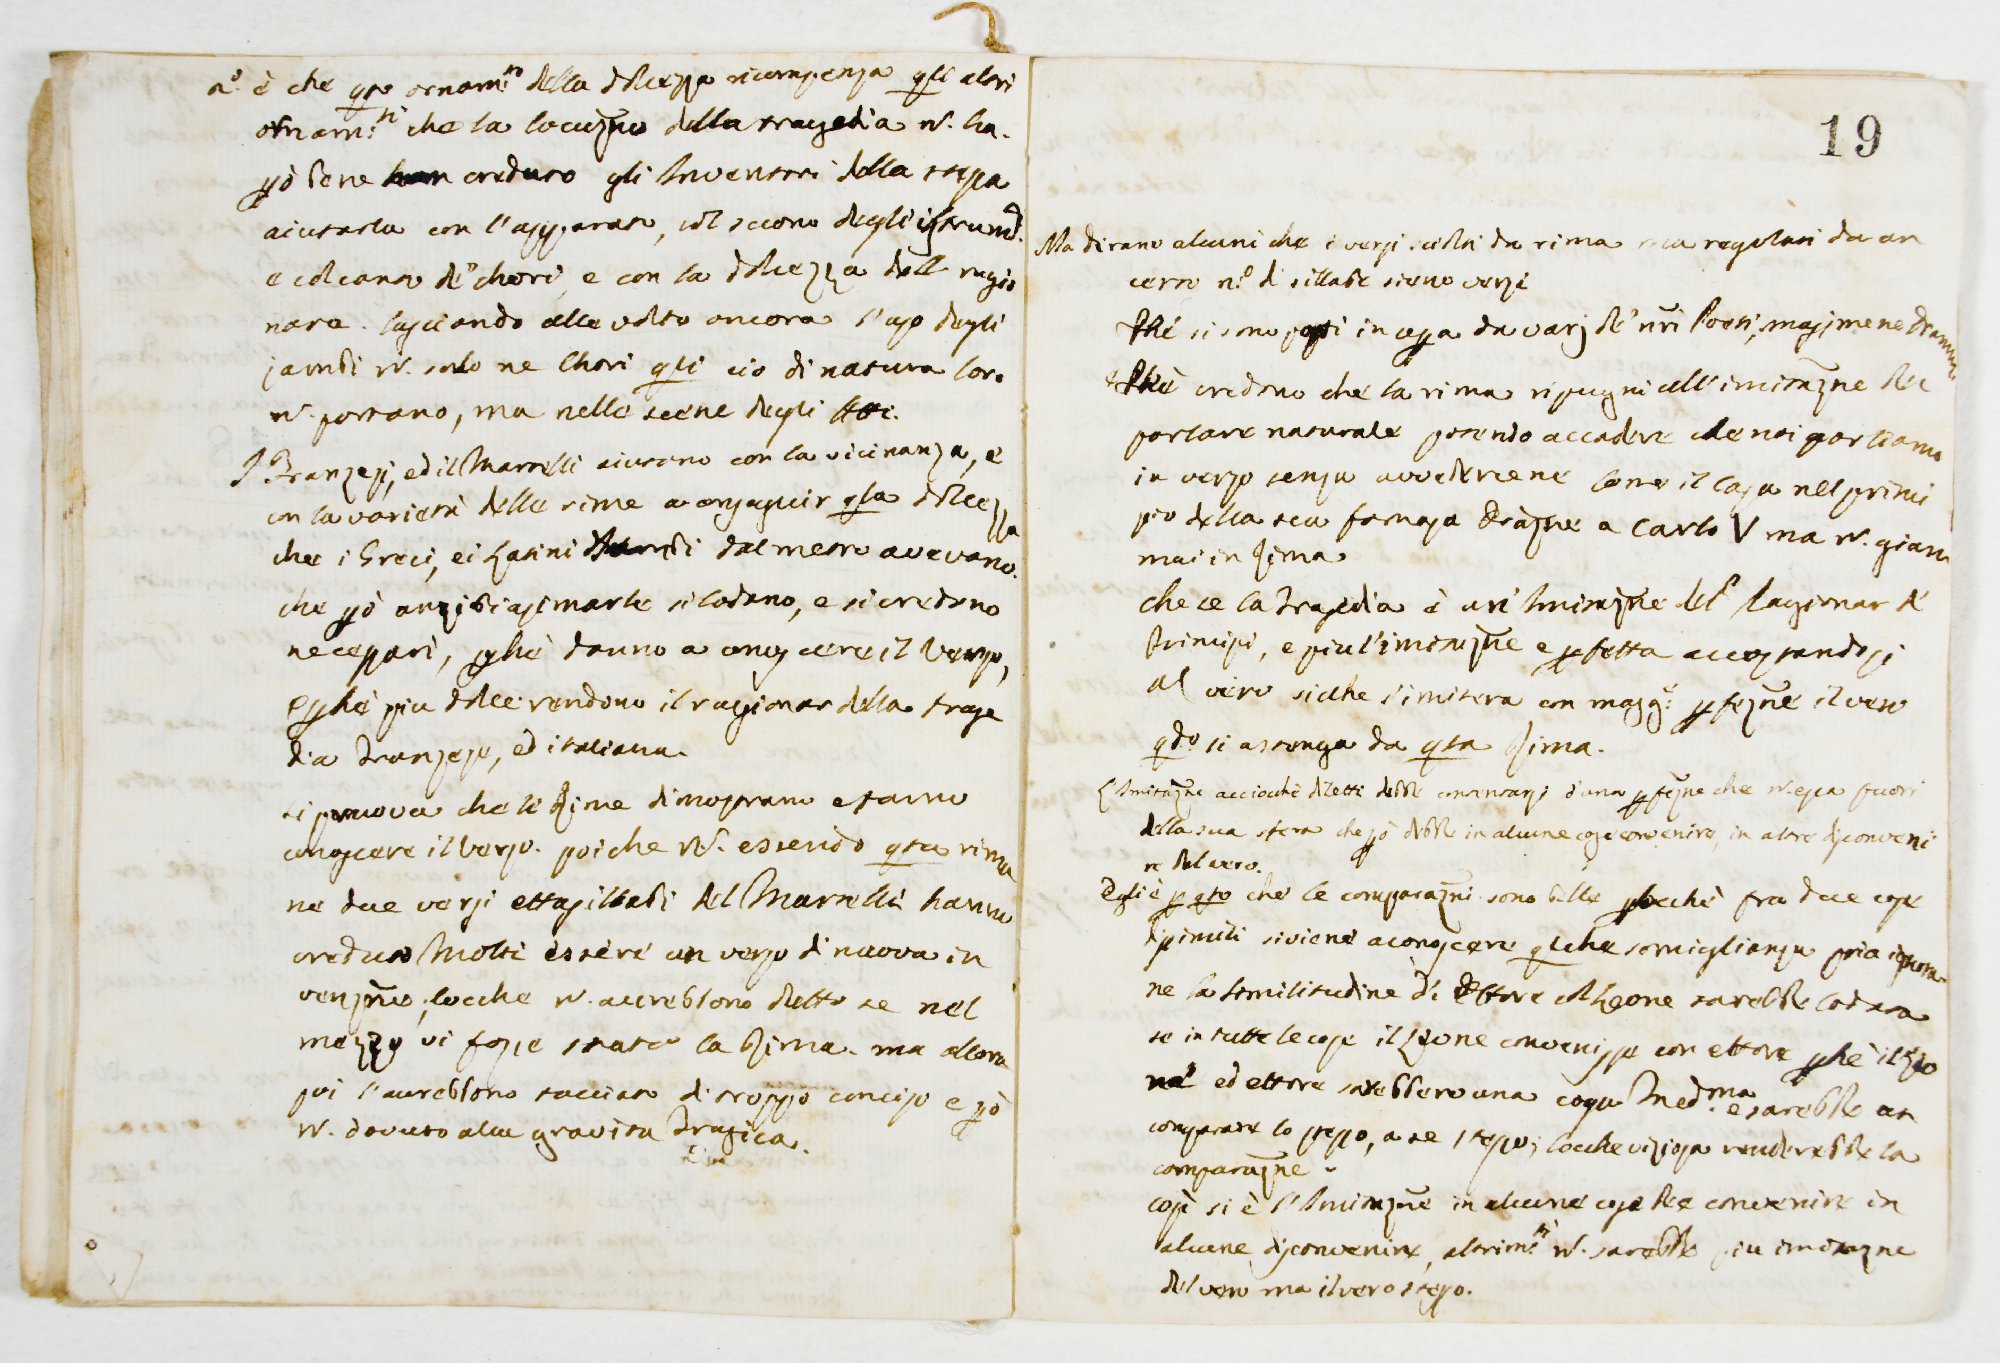 a.° è che qsto ornam.to della dolcezza ricompensa gli altri
ornam.ti che la locuzñe della tragedia ñ. ha.
pò bene creduto gli Inventori della stessa
aiutarla con l'apparato, col suono degli istrum.ti
e col canto de' chori, e con la dolcezza dell ragio
nare. lasciando alle volte ancora l'uso degli
jambi ñ. solo ne Chori qsti ciò di natura loro
ñ. portano, ma nelle scene degli Atti.
I Franzesi, ed il Martelli aiutano con la vicinanza, e
con la varietà delle rime a conseguir qsta dolcezza
che i Greci, ei Latini dal metro avevano.
che pò anzi biasimarle si lodano, e si credono
necessari, pchè danno a conoscere il Verso,
e pchè piu dolce rendono il ragionar della trage
dia Franzese, ed italiana.
si pruova che le Rime dimostrano e fanno
conoscere il Verso. poiche ñ. essendo qsta rima
ne due versi ettasillabi del Martelli hanno
creduto Molti essere un verso di nuova in
venzñe, locche ñ. avrebbono detto se nel
mezzo vi fosse stata la Rima. ma allora
poi l'aurebbono tacciato di troppo conciso e pò
ñ. dovuto alla gravità Tragica.
19
Ma dirano alcuni che i versi sciolti da rima ma regolati da un
certo n.° di sillabe sieno versi
Phè si sono posti in essa da varj de' nri Poeti, massime ne Drammi
Phè credono che la rima ripugni all'imitazñe del
parlare naturale potendo accadere che noi parliamo
in verso senza avvedercene come il Casa nel princi
pio della sua famosa Orazñe a Carlo V ma ñ. giam
mai in Rima
che se la Tragedia è un' Imitazñe del Ragionar de'
Principi, e piu l'imitazñe e pfetta accostandosi
al vero siche s'imitera con magg.r pfezñe il vero
qdo si astenga da qsta Rima.
L'Imitazñe acciocchè diletti debbe contentarsi d'una pfezñe che ñ. esca fuori
della sua sfera che pò debbe in alcune cose convenire, in altre disconveni
re dal vero.
Egli è p qsto che le comparazñi sono belle pocchè fra due cose
dissimili si viene a conoscere qlche somiglianza pria ignota
ne la similitudine di Ettore al Leone sarebbe lodata
se in tutte le cose il Leone convenisse con ettore pchè il Leo
ne ed ettore sarebbero una cosa Med.ma e sarebbe un
comparare lo stesso, a se stesso; locche viziosa renderebbe la
comparazñe.
cosi si è l'Imitazñe in alcune cose dee convenire in
alcune disconvenire, altrim.ti ñ. sarebbe piu imitazne
del vero ma il vero stesso.